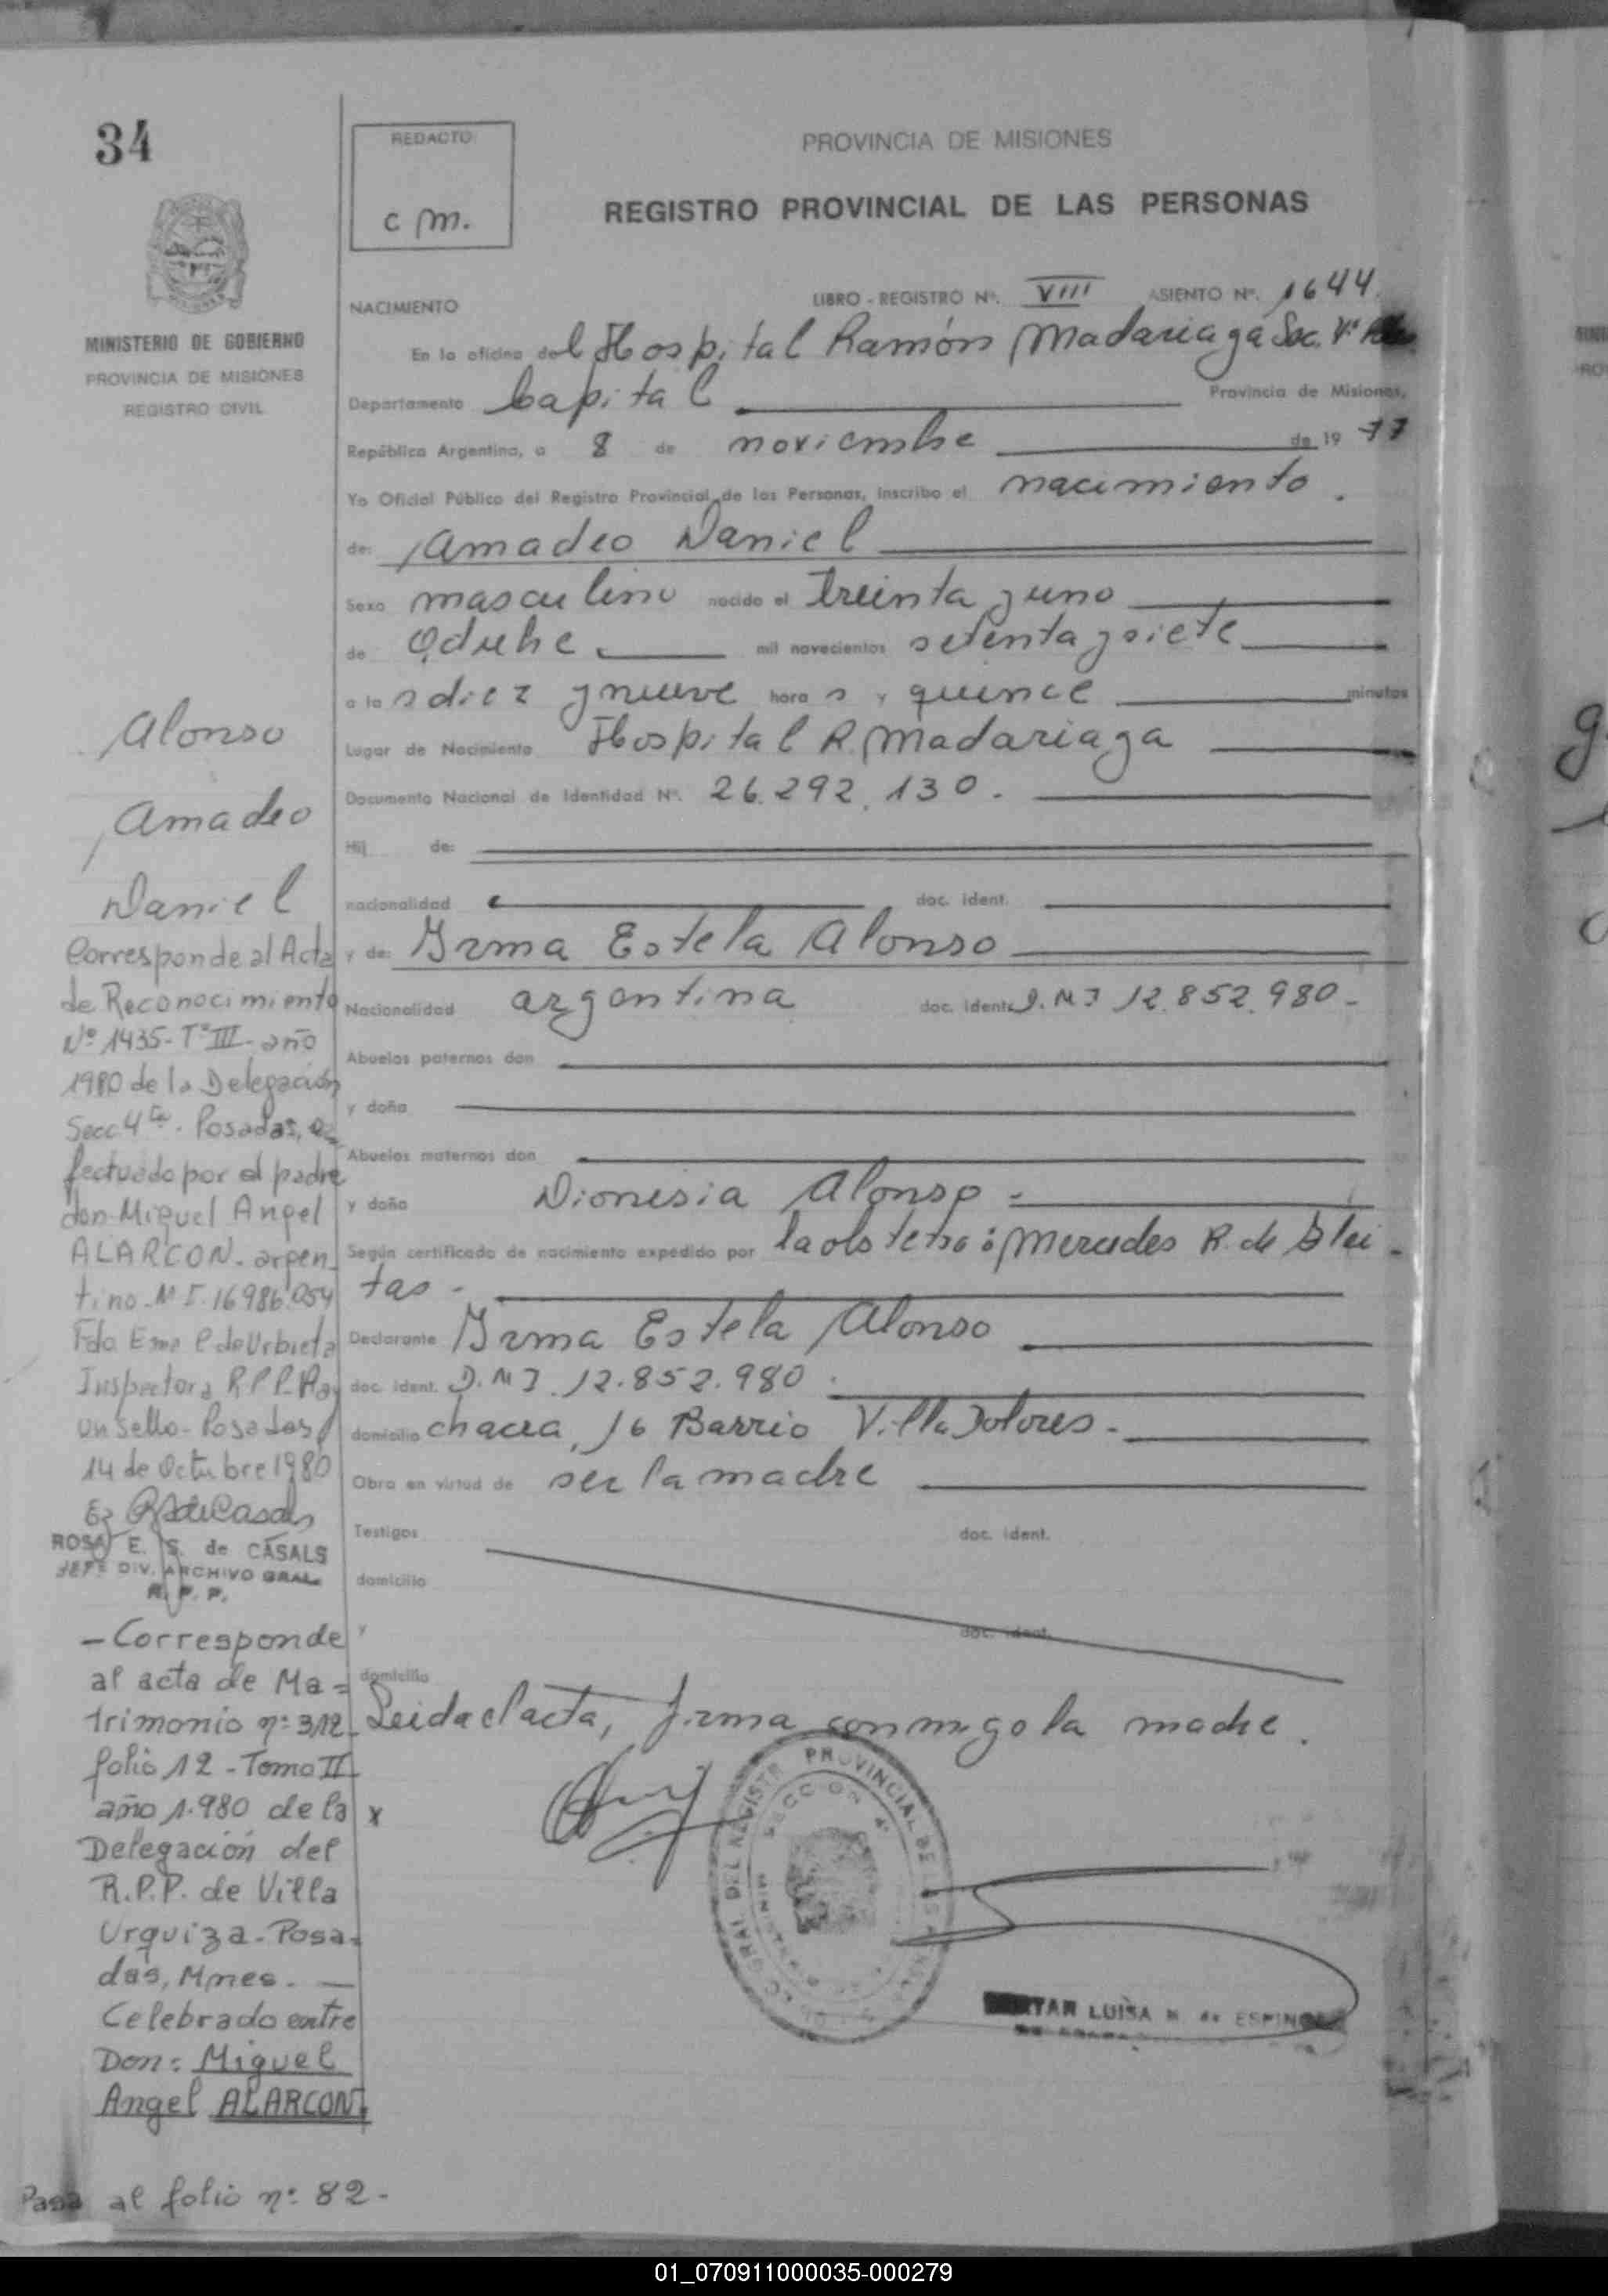 34
REDACTO:
c m.
PROVINCIA DE MISIONES
REGISTRO PROVINCIAL DE LAS PERSONAS
MINISTERIO DE GOBIERNO
PROVINCIA DE MISIONES
REGISTRO CIVIL
NACIMIENTO
LIBRO - REGISTRO Nº. VIII ASIENTO Nº. 1644
En la oficina del Hospital Ramón Madariaga Sec.
Departamento Capital Provincia de Misiones,
República Argentina, a 8 de noviembre de 1977
Yo Oficial Público del Registro Provincial de las Personas, inscribo el nacimiento.
de: Amadeo Daniel
Sexo masculino nacido el treinta y uno
de Octubre mil novecientos setenta y siete
a las diez y nueve horas y quince minutos
Lugar de Nacimiento Hospital R. Madariaga
Documento Nacional de Identidad Nº. 26.292.130.
Hij de:
nacionalidad doc. ident.
y de: Irma Estela Alonso
Nacionalidad argentina doc. ident. D.M I 12.852.980-
Abuelos paternos don
y doña
Abuelos maternos don
y doña Dionisia Alonso
Según certificado de nacimiento expedido por la obstetra: Mercedes R. de
tas.
Declarante Irma Estela Alonso
doc. ident. D.M I. 12.852.980.
domicilio chacra, 16 Barrio Villa Dolores.
Obra en virtud de ser la madre
Testigos doc. ident.
domicilio
y doc. ident.
domicilio
Leida el acta, firma conmigo la madre.
Alonso
Amadeo
Daniel
Corresponde al Acta
de Reconocimiento
Nº 1435-Tº III-año
1980 de la Delegación
Secc 4ta. Posadas, e
fectuado por el padre
don Miguel Angel
ALARCON. argen
tino. M I. 16986.054
Fdo Ema P de Urbieta
Inspectora R P P. Hay
un sello-Posadas
14 de Octubre 1980
ROSA E. S. de CASALS
JEFE DIV. ARCHIVO GRAL.
R. P. P.
- Corresponde
al acta de Ma=
trimonio nº: 312
folio 12 - Tomo II
año 1.980 de la x
Delegación del
R.P.P. de Villa
Urquiza-Posa=
das, Mnes. -
Celebrado entre
Don: Miguel
Angel ALARCON
Pasa al folio nº: 82-
LUISA de
01_070911000035-000279